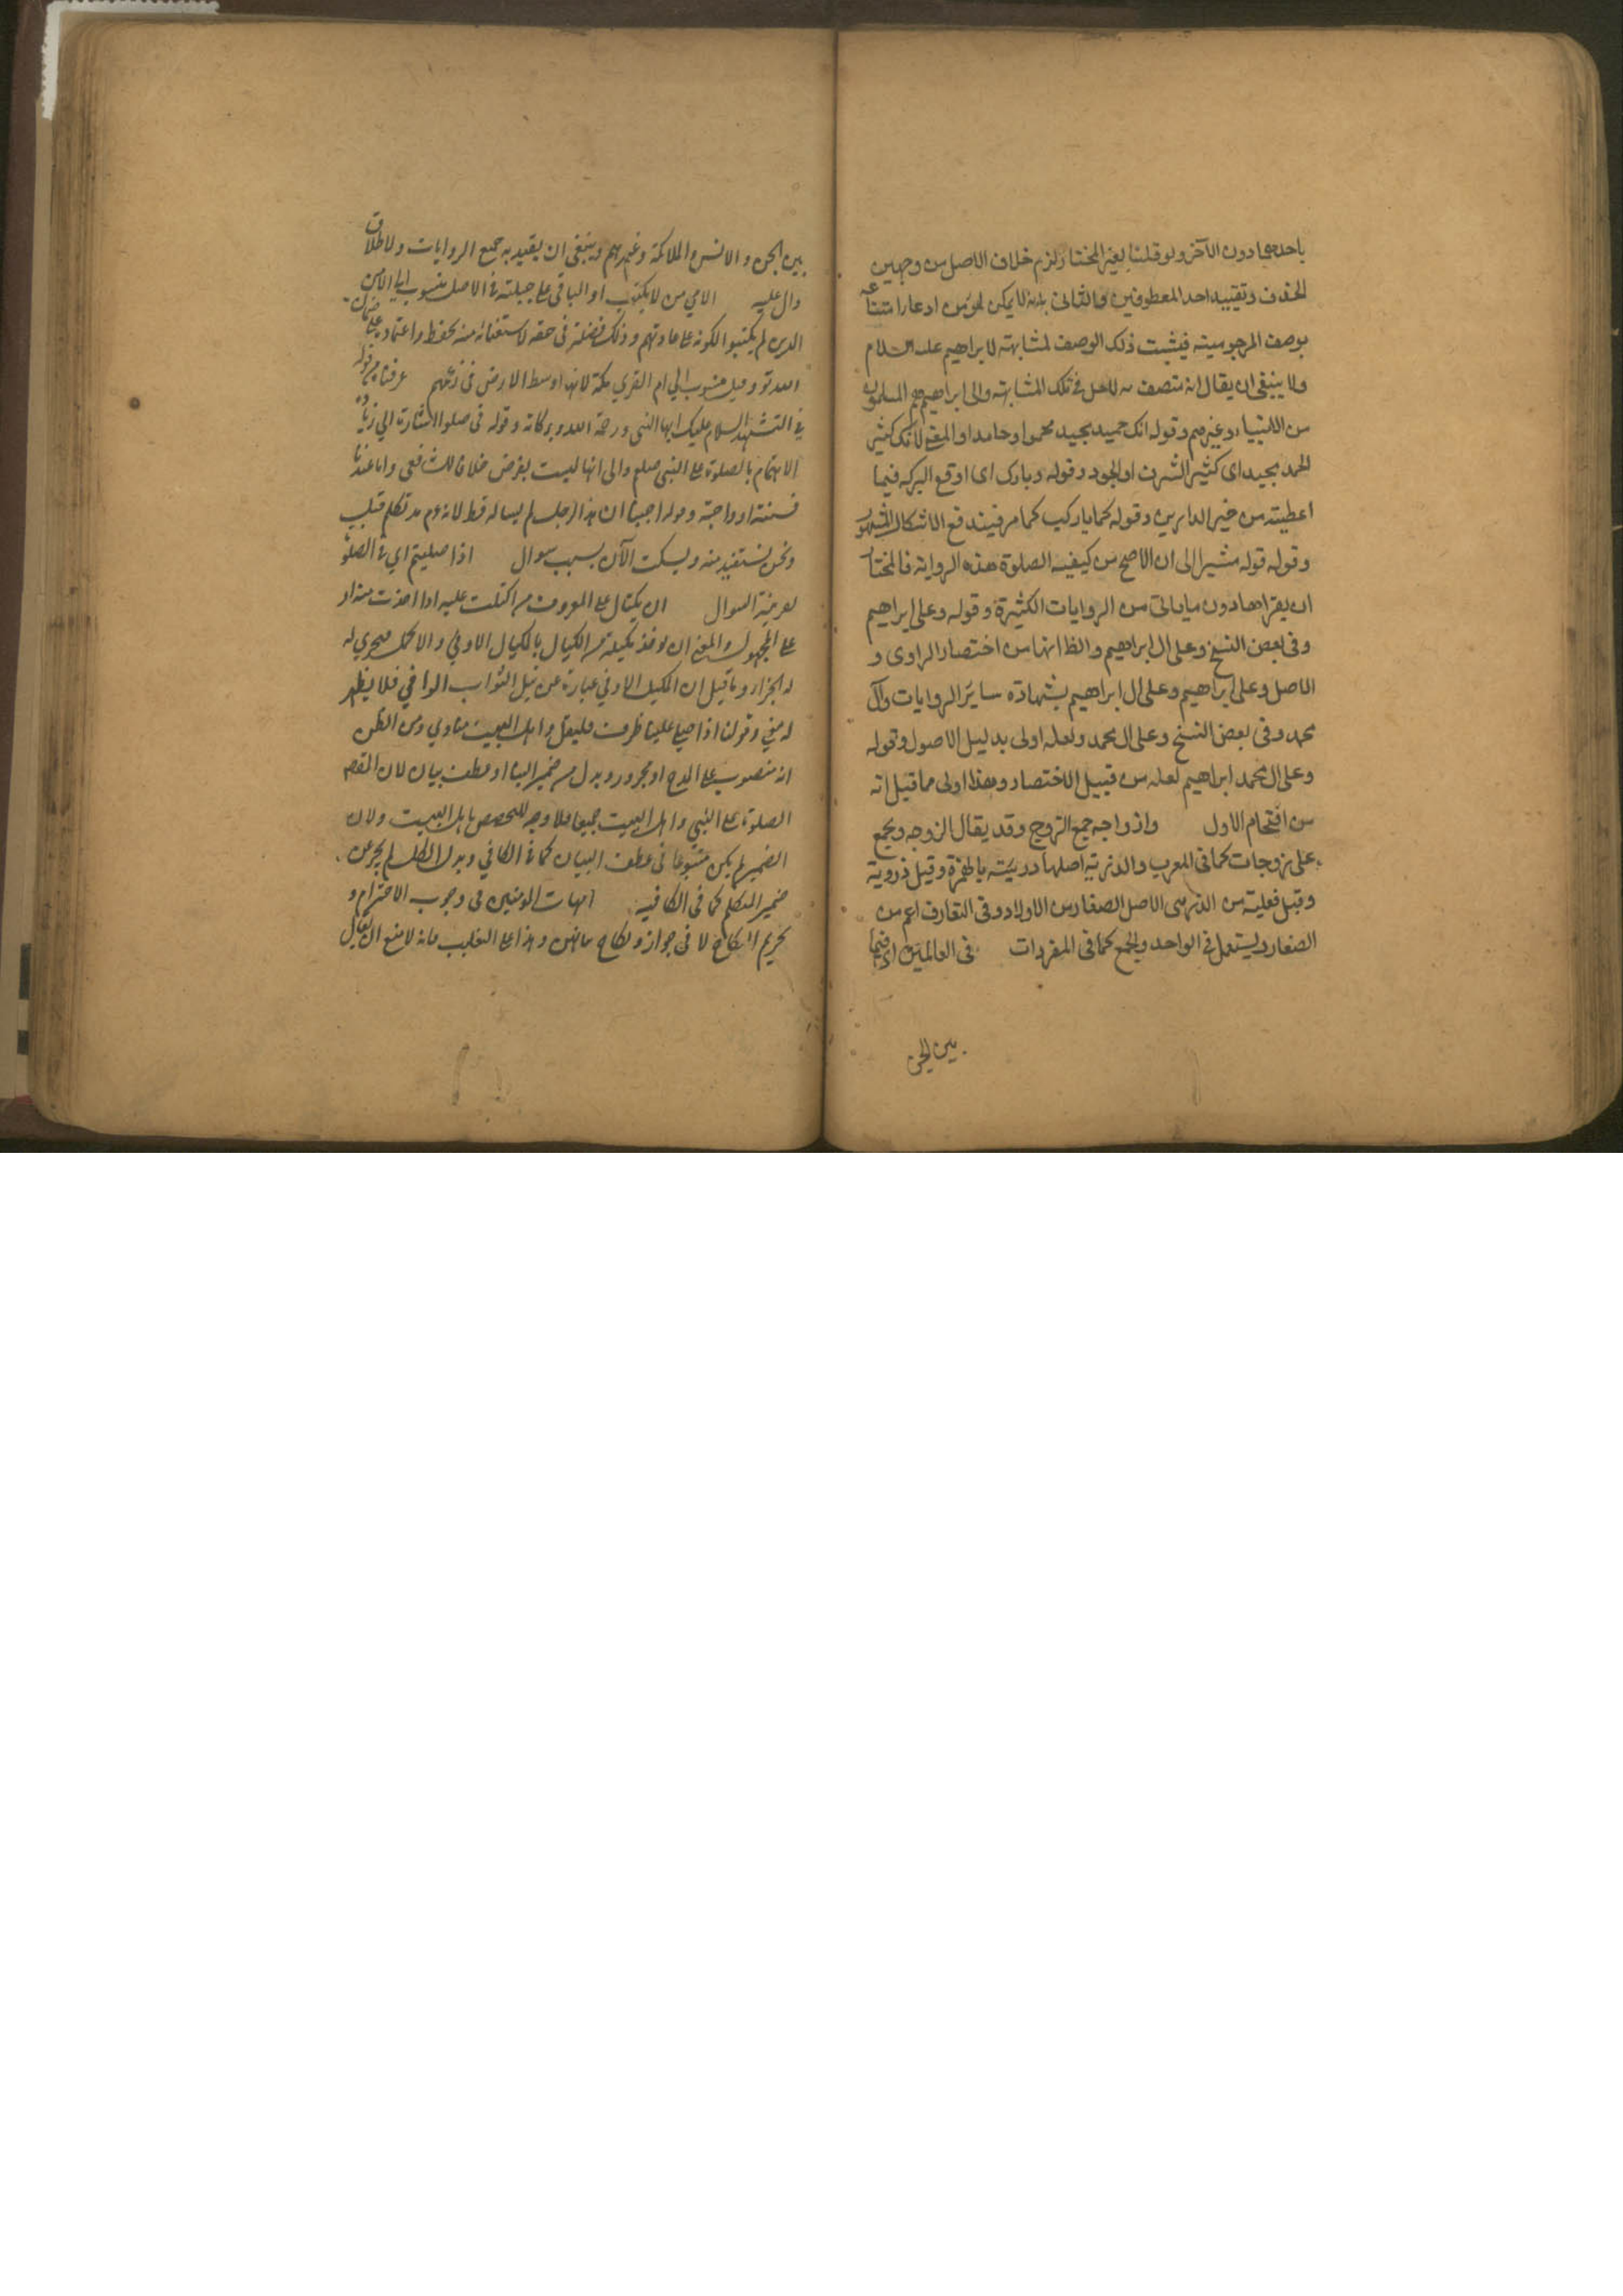 باحدهما دون الآخر ولو قلنا بغير المختار لزم خلاف الاصل من وجهين
الحذف وتقييد احد المعطوفين والثانى بانه لا يمكن لمؤمن ادعاء امتناعه
بوصف المرجوسيته فيثبت ذلك الوصف لمشابهته لابراهيم عليه السلام
ولا ينبغى ان يقال انه متصف به لاهل تلك المشابهة والى ابراهيم هم المسلمون
من الانبياء وغيرهم وقوله انك حميد مجيد محمود او حامد او المعنى لانك كثير
الحمد مجيد اى كثير الشرف او الجود وقوله وبارك اى اوقع البركه فيما
اعطيته من خير الدارين وقوله كما باركت كما مر فيندفع الاشكال المشهور
وقوله قوله مشيرا الى ان الاصح من كيفيه الصلوة هذه الرواية فالمختار
ان يقراها دون ماياتى من الروايات الكثيرة وقوله وعلى ابراهيم
وفى بعض النسخ وعلى ال ابراهيم والظ انها من اختصار الراوى و
الاصل وعلى ابراهيم وعلى ال ابراهيم بشهادة ساير الروايات وآل
محمد وفى بعض النسخ وعلى ال محمد ولعله اولى بدليل الاصول وقوله
وعلى ال محمد ابراهيم لعله من قبيل الاختصار وهذا اولى مما قيل انه
من اقحام الاول وازواجه جمع الزوج وقد يقال الزوجه ويجمع
على زوجات كما فى المعرب والذرية اصلها ذريئة بالهمزة وقيل ذروية
وقيل فعلية من الذر هى الاصل الصغار من الاولاد وفى التعارف اعم من
الصغار ويستعمل فى الواحد والجمع كما فى المفردات فى العالمين اى فيما
بين الجن
بين الجن والانس والملائكة وغيرهم وينبغى ان يقيد به جميع الروايات ولاطلاق
دال عليه الامي من لا يكتب او الباقى على جبلته فى الاصل منسوب الى الامين
الذين لم يكتبوا لكونه على عادتهم وذلك فضيلة فى حقه لاستغنائه منه بحفظه واعتماده على ضمان
الله تع وقيل منسوب الى ام القرى مكة لانها اوسط الارض فى زعمهم عرفنا من قوله
فى التشهد السلام عليك ايها النبى ورحمة الله وبركاته وقوله فى صلوا الاشارة الى زيادة
الاهتمام بالصلوة على النبى صلعم والى انها ليست بفرض خلافا للشافعى واما عندنا
فسنته او واجبة وقوله احببنا ان هذا الرجل لم يساله قط لانه قد تكلم قبل
ونحن نستفيد منه ويسكت الآن بسبب سوال اذا صليتم اي فى الصلوة
لقرينة السوال ان يكتال على المعروف من اكتلت عليه اذا اخذت منه او
على المجهول والمعنى ان يوخذ بكيله من الكيال بالمكيال الاوفى والاكمل فيجرى له
له الجزاء وما قيل ان المكيل الاوفى عبارة عن نيل الثواب الوافى فلا يظهر
له معنى وقولنا اذا صلى علينا ظرف فليقل واهل البيت منادي ومن الظن
انه منصوب على المدح او مجرور وبدل من ضمير البناء او عطف بيان لان المقصد
الصلوة على النبي واهل البيت جميعا فلا وجه للتخصيص باهل البيت ولان
الضمير لم يكن متبوعا فى عطف البيان كما فى الكافي وبدل الكل لم يجز عن
ضمير المتكلم كما فى الكافيه امهات المومنين فى وجوب الاحترام و
تحريم النكاح لا فى جواز ونكاح بناتهن وهذا على التغليب فانه لا منع ان يقال